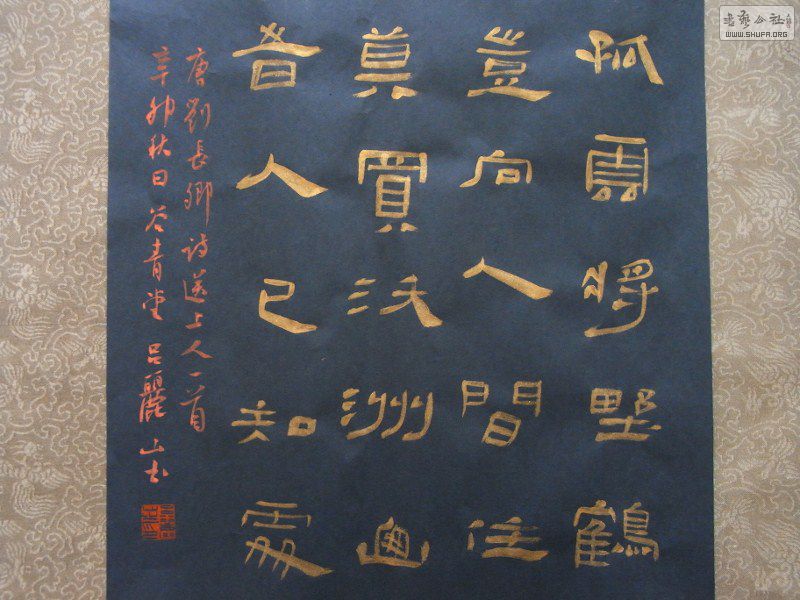 孤雲將野鶴
豈向人間住
莫買沃洲山
旹人已知處
唐劉長卿詩送上人一首
辛卯秋日谷青堂呂麗山书
書藝公社
WWW.SHUFA.ORG